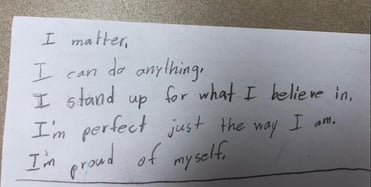 I matter.
I can do anything.
I stand up for what I believe in.
I'm perfect just the way I am.
I'm proud of myself.